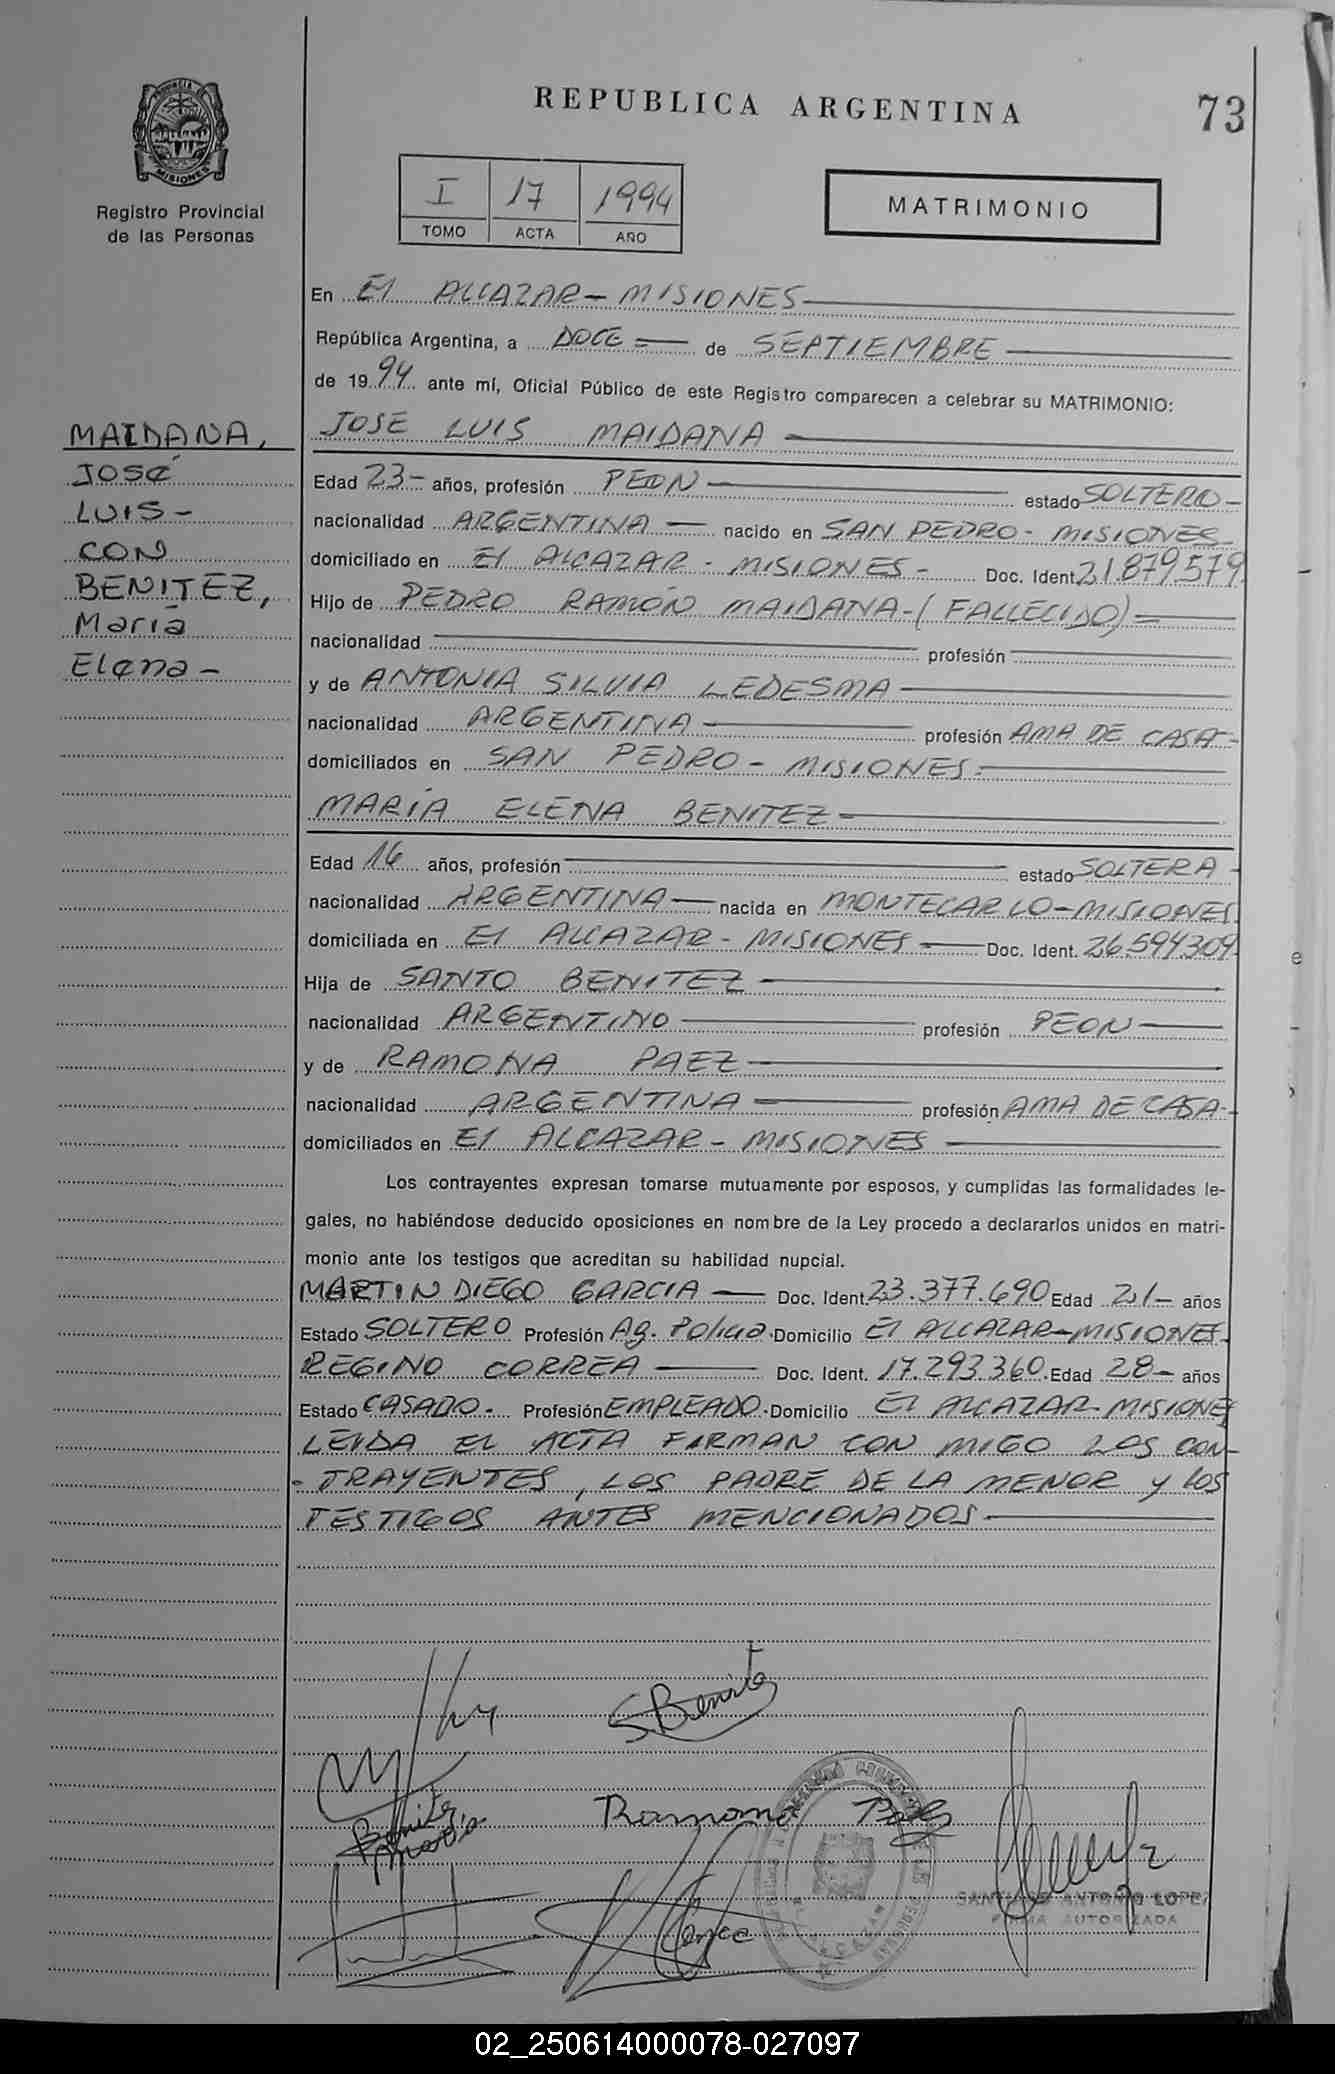 REPUBLICA ARGENTINA
73
PROVINCIA DE MISIONES
Registro Provincial
de las Personas
I 17 1994
TOMO ACTA AÑO
MATRIMONIO
MAIDANA,
JOSÉ
LUIS -
CON
BENITEZ,
María
Elena -
En El ALCAZAR - MISIONES
República Argentina, a DOCE = de SEPTIEMBRE
de 1994 ante mí, Oficial Público de este Registro comparecen a celebrar su MATRIMONIO:
JOSE LUIS MAIDANA
Edad 23- años, profesión PEON estado SOLTERO -
nacionalidad ARGENTINA - nacido en SAN PEDRO - MISIONES
domiciliado en El ALCAZAR - MISIONES - Doc. Ident. 21.879.579
Hijo de PEDRO RAMÓN MAIDANA - (FALLECIDO) -
nacionalidad profesión
y de ANTONIA SILVIA LEDESMA
nacionalidad ARGENTINA profesión AMA DE CASA -
domiciliados en SAN PEDRO - MISIONES.
MARÍA ELENA BENITEZ
Edad 16 años, profesión estado SOLTERA -
nacionalidad ARGENTINA nacida en MONTECARLO - MISIONES
domiciliada en El ALCAZAR - MISIONES - Doc. Ident. 26.594309
Hija de SANTO BENITEZ
nacionalidad ARGENTINO profesión PEON
y de RAMONA PAEZ
nacionalidad ARGENTINA profesión AMA DE CASA -
domiciliados en El ALCAZAR - MISIONES
Los contrayentes expresan tomarse mutuamente por esposos, y cumplidas las formalidades le-
gales, no habiéndose deducido oposiciones en nombre de la Ley procedo a declararlos unidos en matri-
monio ante los testigos que acreditan su habilidad nupcial.
MARTIN DIEGO GARCIA - Doc. Ident. 23.377.690 Edad 21- años
Estado SOLTERO Profesión Ag. Policia. Domicilio El ALCAZAR - MISIONES.
REGINO CORREA Doc. Ident. 17.293.360. Edad 28- años
Estado CASADO. Profesión EMPLEADO. Domicilio El ALCAZAR - MISIONES
LEIDA EL ACTA FIRMAN CON MIGO LOS CON-
- TRAYENTES, LOS PADRE DE LA MENOR y los
TESTIGOS ANTES MENCIONADOS
S Benitez
Benitez
Maria
Ramona Paez
SANTIAGO ANTONIO LOPEZ
FIRMA AUTORIZADA
02_250614000078-027097